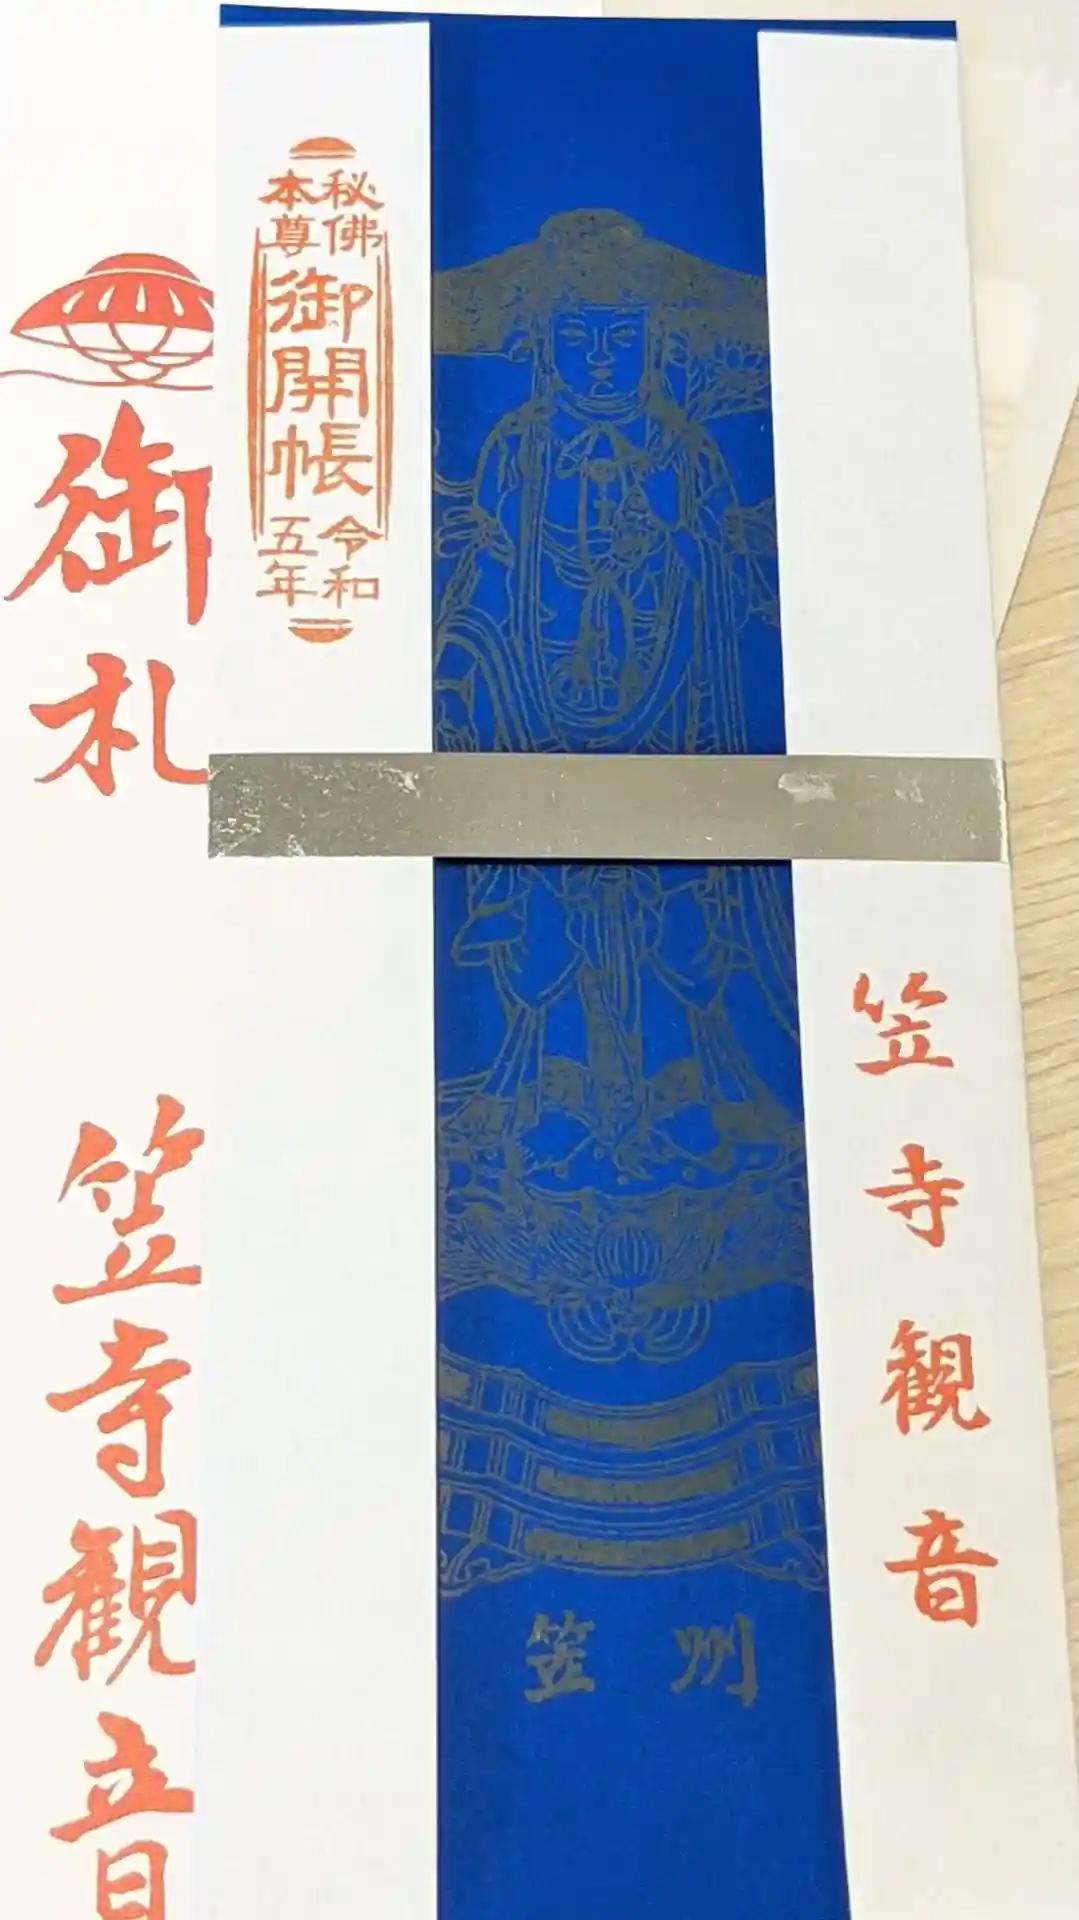 御札
笠寺観音
秘佛
本尊
御開帳
令和
五年
笠寺観音